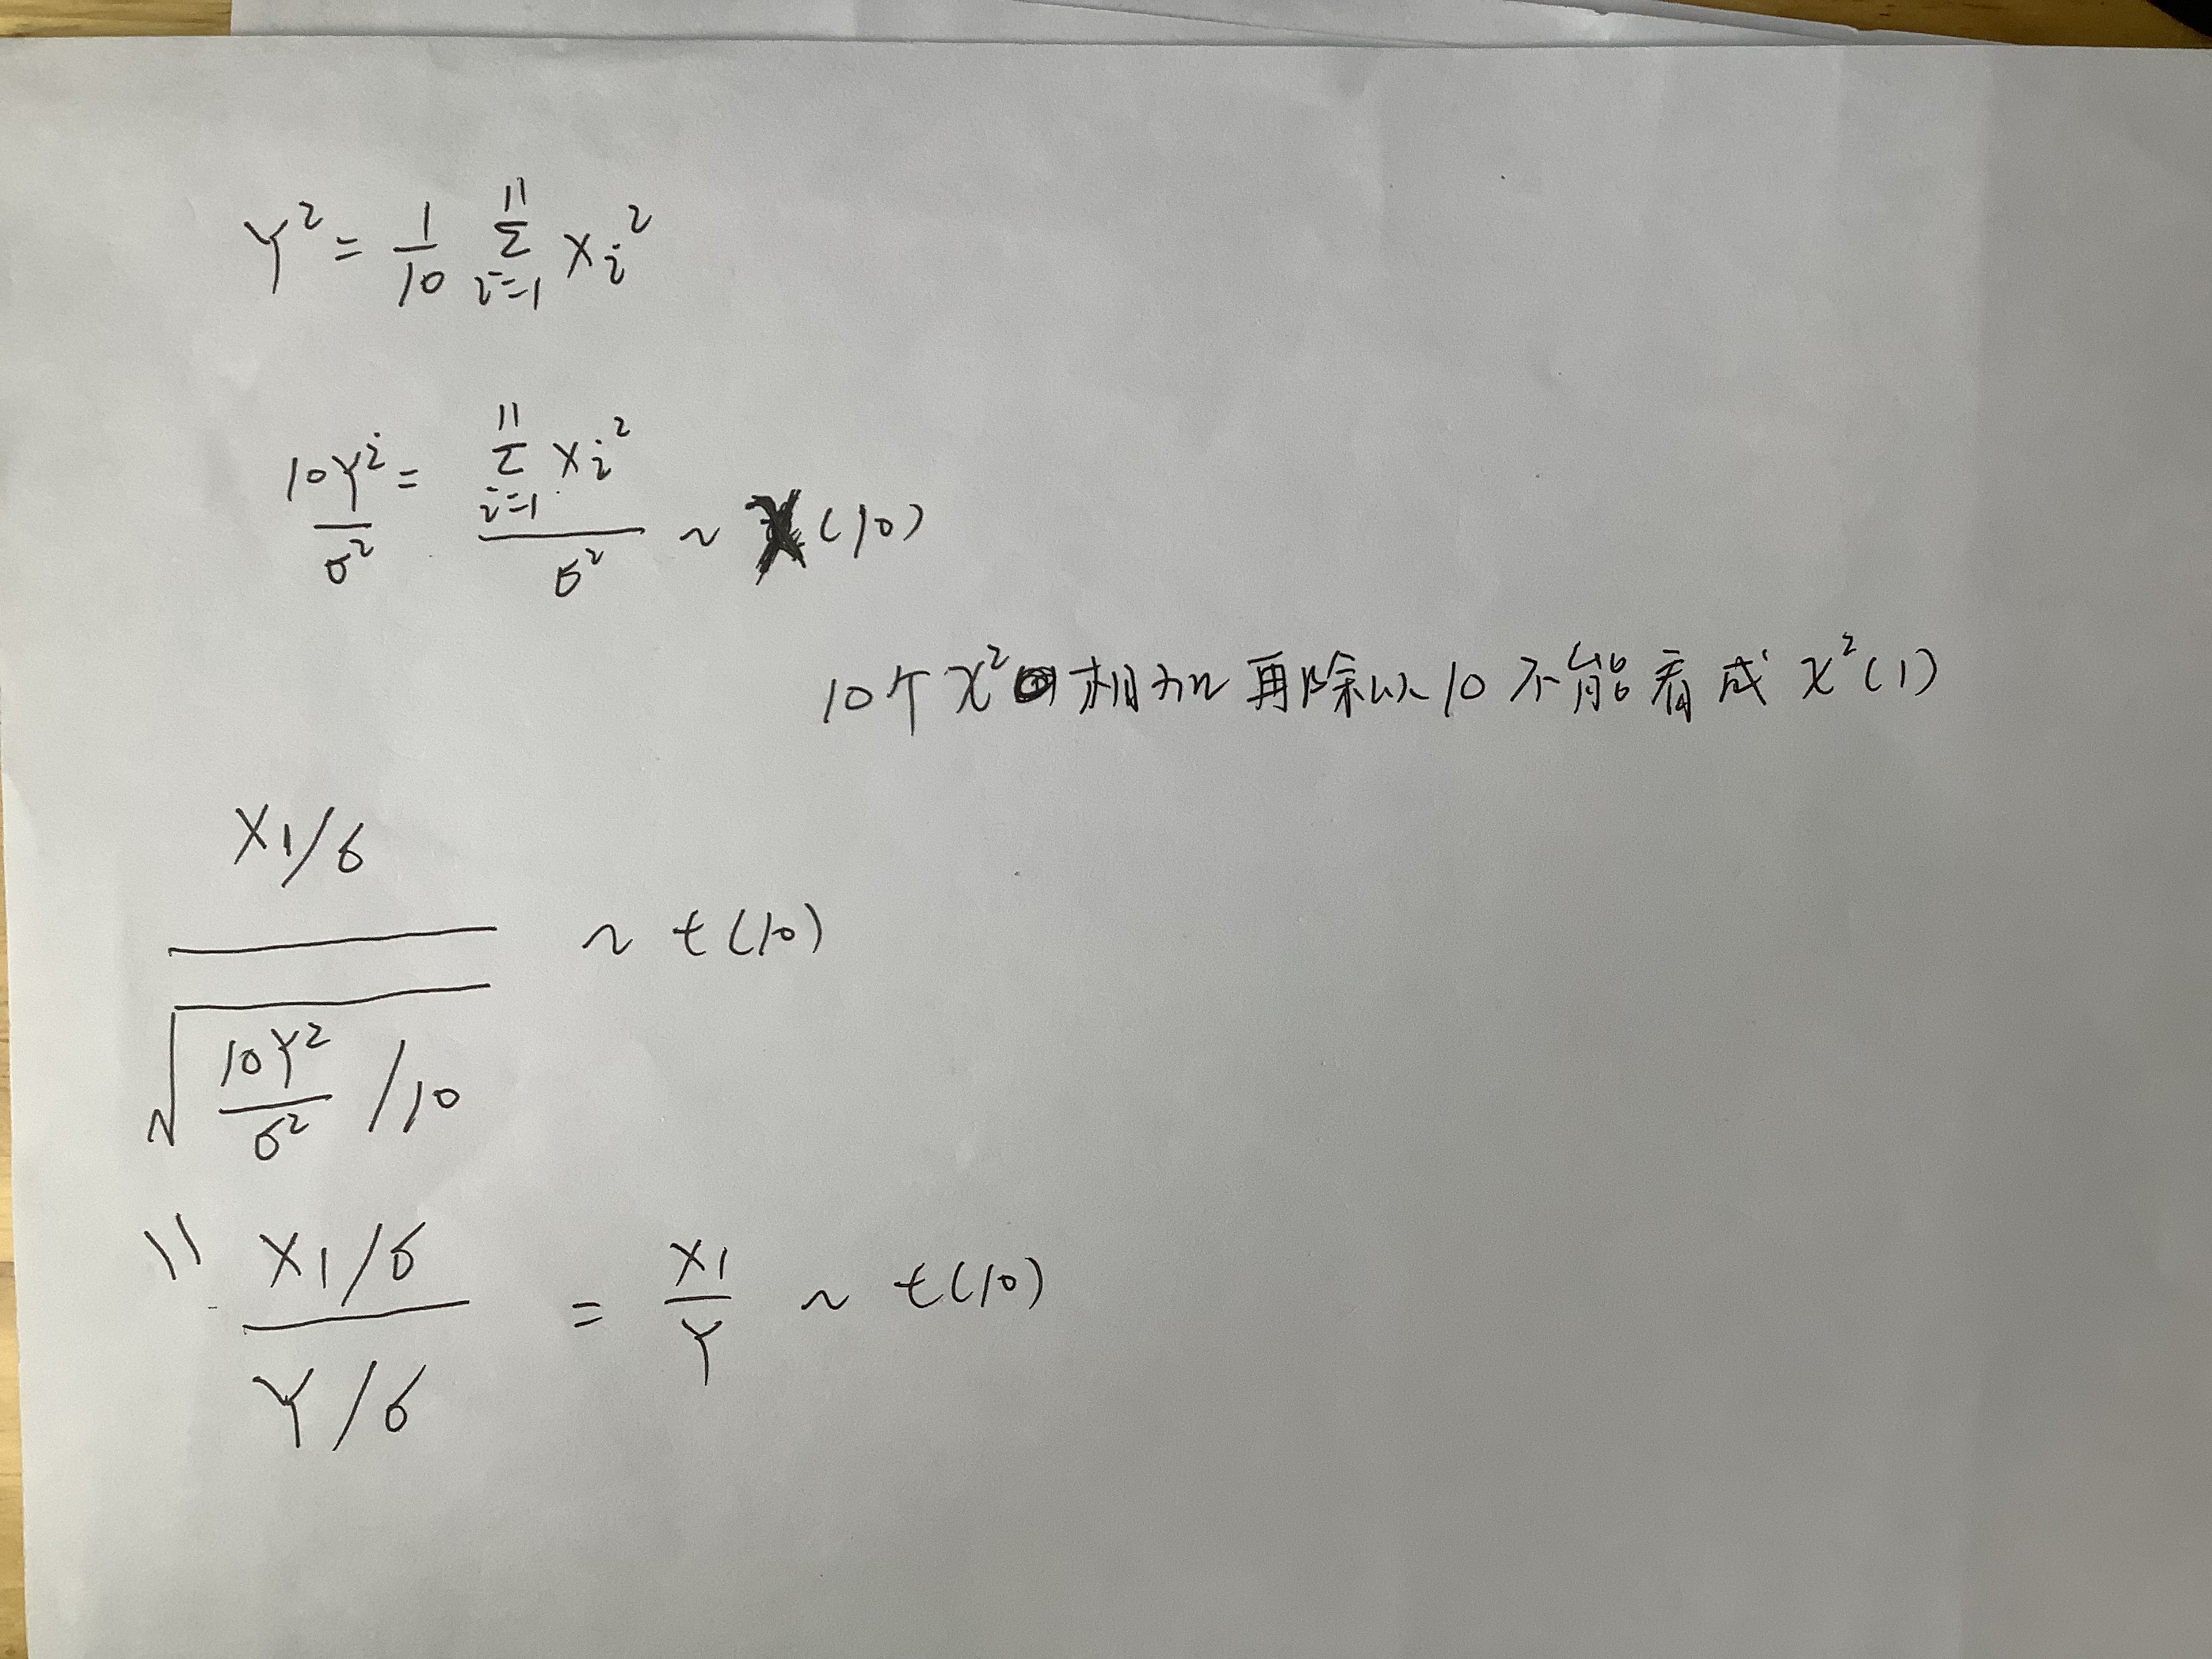 Y² = 1/10 Σ_{i=1}^{11} X_i²
10Y²/σ² = Σ_{i=1}^{11} X_i² / σ² ~ χ(10)
10个χ²相加再除以10不能看成χ²(1)
(X₁/σ) / √(10Y²/σ² /10) ~ t(10)
= (X₁/σ)/(Y/σ) = X₁/Y ~ t(10)